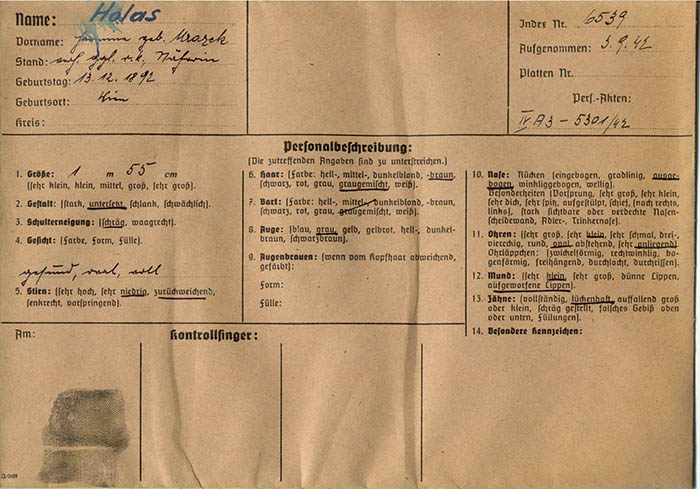 Name: Halas
Vorname: geb. Mrazek
Stand: verh. ggl. r. k. Näherin
Geburtstag: 13. 12. 1892
Geburtsort: Wien
Kreis:
Index Nr. 6539
Aufgenommen: 3. 9. 42
Platten Nr.
Pers.-Akten:
IV A3 - 5301/42
Personalbeschreibung:
(Die zutreffenden Angaben sind zu unterstreichen.)
1. Größe: 1 m 55 cm
(sehr klein, klein, mittel, groß, sehr groß).
2. Gestalt: (stark, untersetzt, schlank, schwächlich).
3. Schulterneigung: (schräg, waagrecht).
4. Gesicht: (Farbe, Form, Fülle).
gesund, oval, voll
5. Stirn: (sehr hoch, sehr niedrig, zurückweichend,
senkrecht, vorspringend).
6. Haar: (Farbe: hell-, mittel-, dunkelblond, -braun,
schwarz, rot, grau, graugemischt, weiß).
7. Bart: (Farbe: hell-, mittel-, dunkelblond, -braun,
schwarz, rot, grau, graugemischt, weiß).
8. Auge: (blau, grau, gelb, gelbrot, hell-, dunkel-
braun, schwarzbraun).
9. Augenbrauen: (wenn vom Kopfhaar abweichend,
gefärbt):
Form:
Fülle:
10. Nase: Rücken (eingebogen, gradlinig, ausge-
bogen, winkliggebogen, wellig).
Besonderheiten (Vorsprung, sehr groß, sehr klein,
sehr dick, sehr spitz, aufgestülpt, schief, (nach rechts,
links), stark sichtbare oder verdeckte Nasen-
scheidewand, Adler-, Trinkernase).
11. Ohren: (sehr groß, sehr klein, sehr schmal, drei-,
viereckig, rund, oval, abstehend, sehr anliegend)
Ohrläppchen: (zwickelförmig, rechtwinklig, bo-
genförmig, freihängend, durchlocht, durchrissen).
12. Mund: (sehr klein, sehr groß, dünne Lippen,
aufgeworfene Lippen).
13. Zähne: (vollständig, lückenhaft, auffallend groß
oder klein, schräg gestellt, falsches Gebiß oben
oder unten, Füllungen).
14. Besondere Kennzeichen:
Am:
Kontrollfinger: